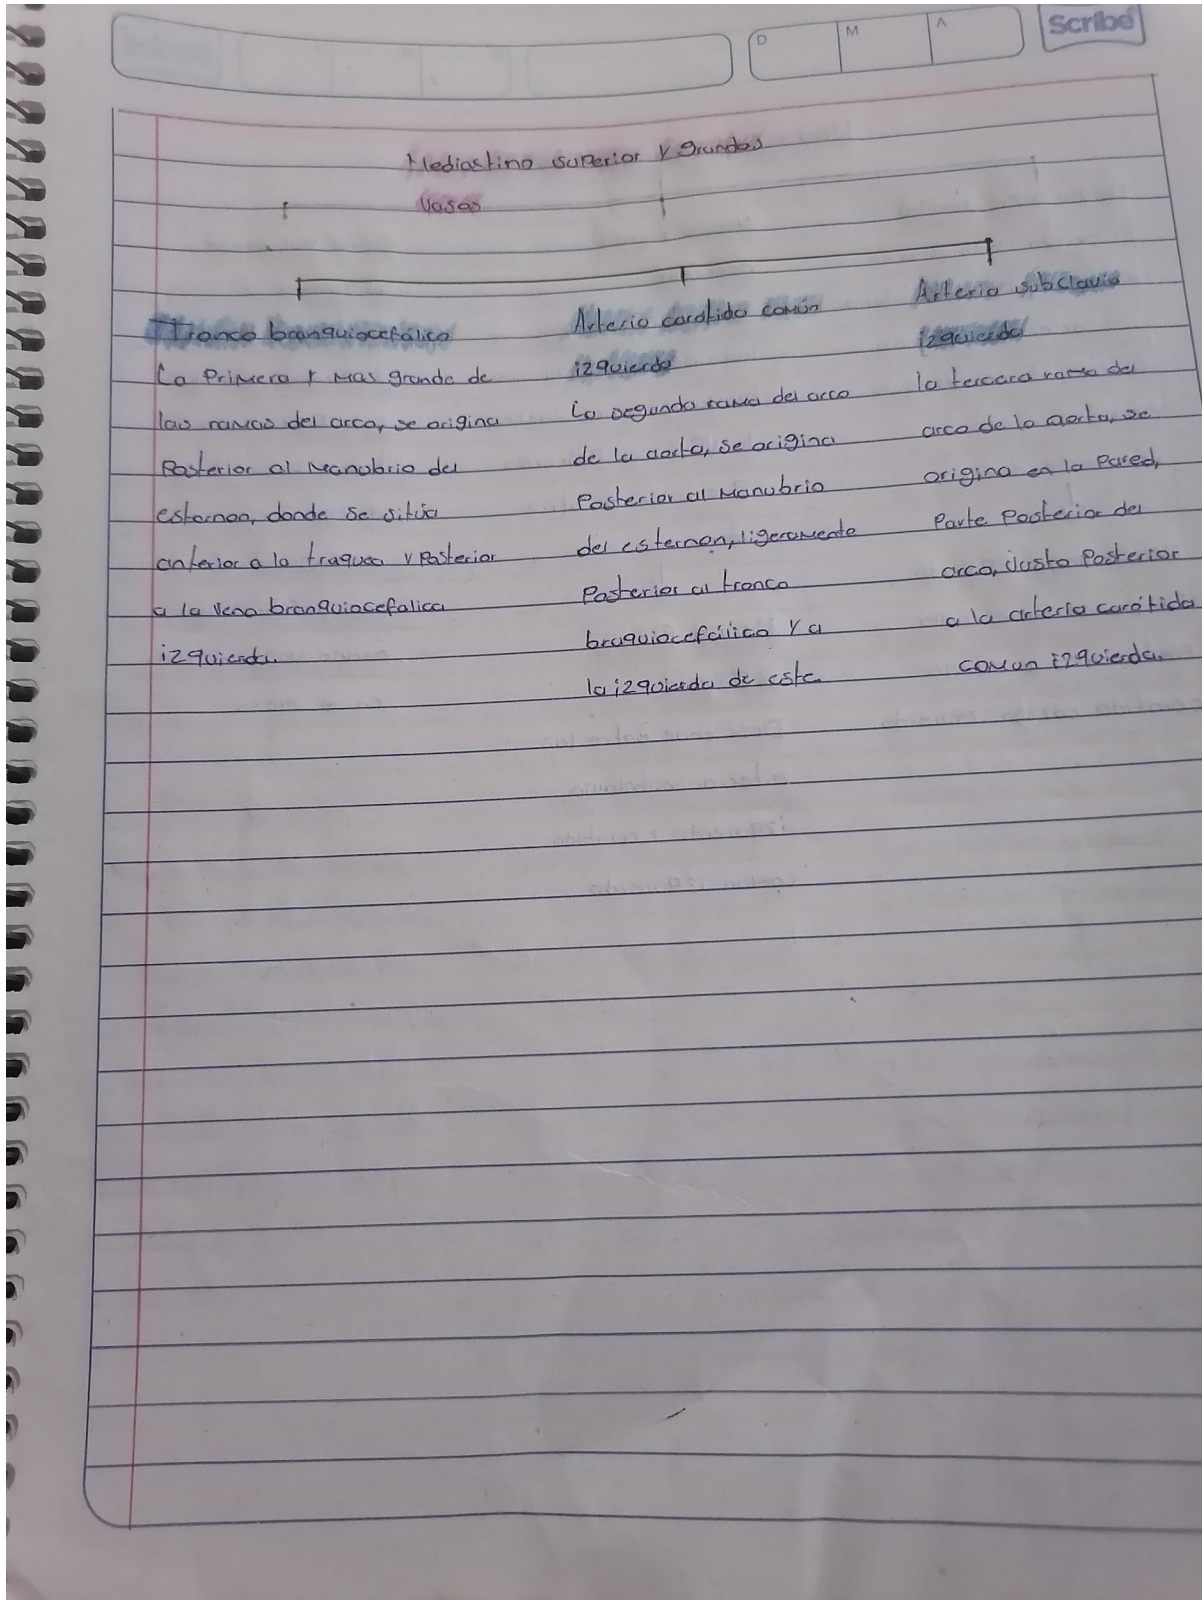 Scribe
D M A
Mediastino superior y grandes
Vasos
Tronco branquiocefálico
La Primera y Mas grande de
las ramas del arco, se origina
Posterior al Manubrio del
esternon, donde se sitúa
anterior a la traquea y Posterior
a la Vena branquiocefalica
izquierda.
Arteria carotida común
izquierda
La segunda rama del arco
de la aorta, se origina
Posterior al Manubrio
del esternon, ligeramente
Posterior al tronco
braquiocefálico y a
la izquierda de este.
Arteria subclavia
izquierda
la tercera rama del
arco de la aorta, se
origina en la Pared,
Parte Posterior del
arco, Justo Posterior
a la arteria carótida
comun izquierda.